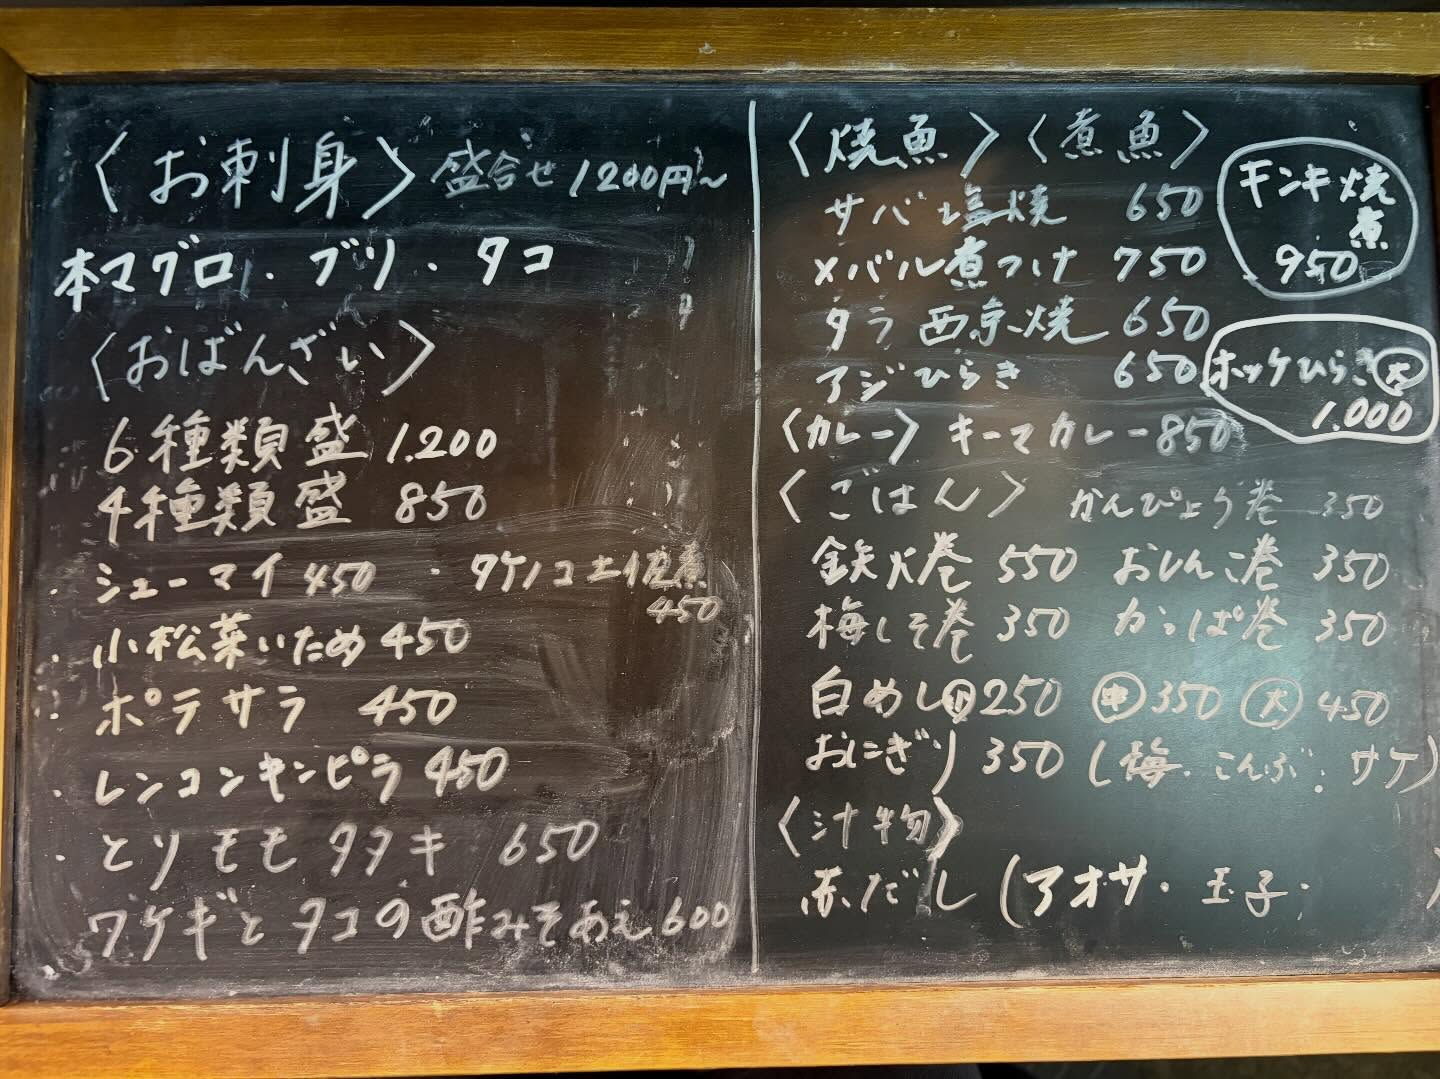 〈お刺身〉盛合せ1200円〜
本マグロ・ブリ・タコ
〈おばんざい〉
6種類盛 1.200
4種類盛 850
・シューマイ 450
・タケノコ土佐煮 450
・小松菜いため 450
・ポテサラ 450
・レンコンキンピラ 450
・とりモモタタキ 650
ワケギとタコの酢みそあえ 600
〈焼魚〉〈煮魚〉
サバ塩焼 650
メバル煮つけ 750
タラ西京焼 650
アジひらき 650
キンキ焼
煮
950
ホッケひらき㊅
1.000
〈カレー〉キーマカレー 850
〈ごはん〉かんぴょう巻 350
鉄火巻 550 おしんこ巻 350
梅しそ巻 350 かっぱ巻 350
白めし 小250 中350 大450
おにぎり 350 (梅・こんぶ・サケ)
〈汁物〉
赤だし(アオサ・玉子・ )